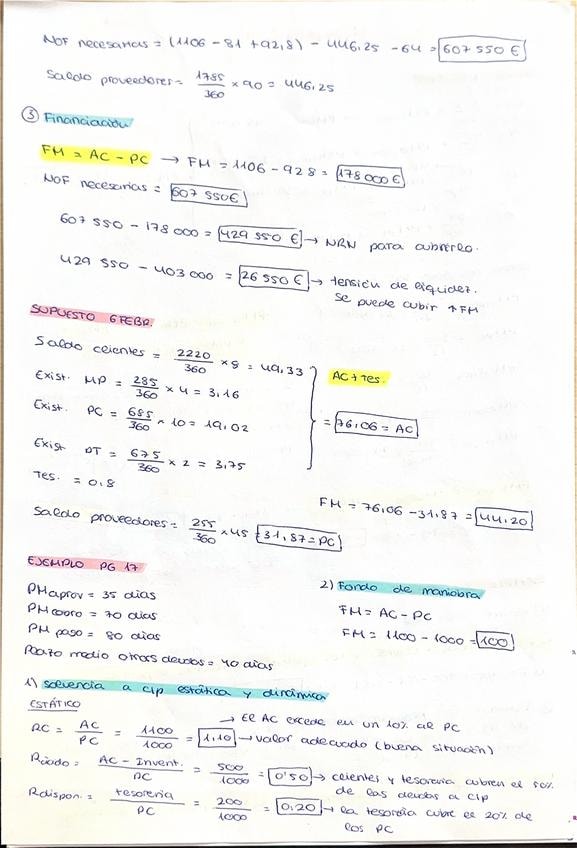 NOF necesarias = (1106 - 81 + 92,8) - 446,25 - 64 = 607 550 €
Saldo proveedores = 1785/360 x 90 = 446,25
③ Financiación
FM = AC - PC → FM = 1106 - 928 = 178 000 €
NOF necesarias = 607 550 €
607 550 - 178 000 = 429 550 € → NRN para cubrirlo.
429 550 - 403 000 = 26 550 € → tensión de liquidez.
se puede cubir ↑ FM
SUPUESTO 6 FEBR.
Saldo clientes = 2220/360 x 8 = 49,33
Exist. MP = 285/360 x 4 = 3,16
Exist. PC = 685/360 x 10 = 19,02
Exist. DT = 675/360 x 2 = 3,75
Tes. = 0,8
AC + Tes.
= 76,06 = AC
Saldo proveedores = 255/360 x 45 = 31,87 = PC
FM = 76,06 - 31,87 = 44,20
EJEMPLO PG 17
PM aprov = 35 días
PM cobro = 70 días
PM pago = 80 días
Plazo medio otras deudas = 40 días
2) Fondo de maniobra
FM = AC - PC
FM = 1100 - 1000 = 100
1) Solvencia a c/p estática y dinámica
ESTÁTICO
→ El AC excede en un 10% al PC
RC = AC/PC = 1100/1000 = 1,10 → valor adecuado (buena situación)
Rácido = AC - Invent./PC = 500/1000 = 0'50 → clientes y tesorería cubren el 50%
de las deudas a c/p
Rdispon. = tesorería/PC = 200/1000 = 0,20 → la tesorería cubre el 20% de
los PC